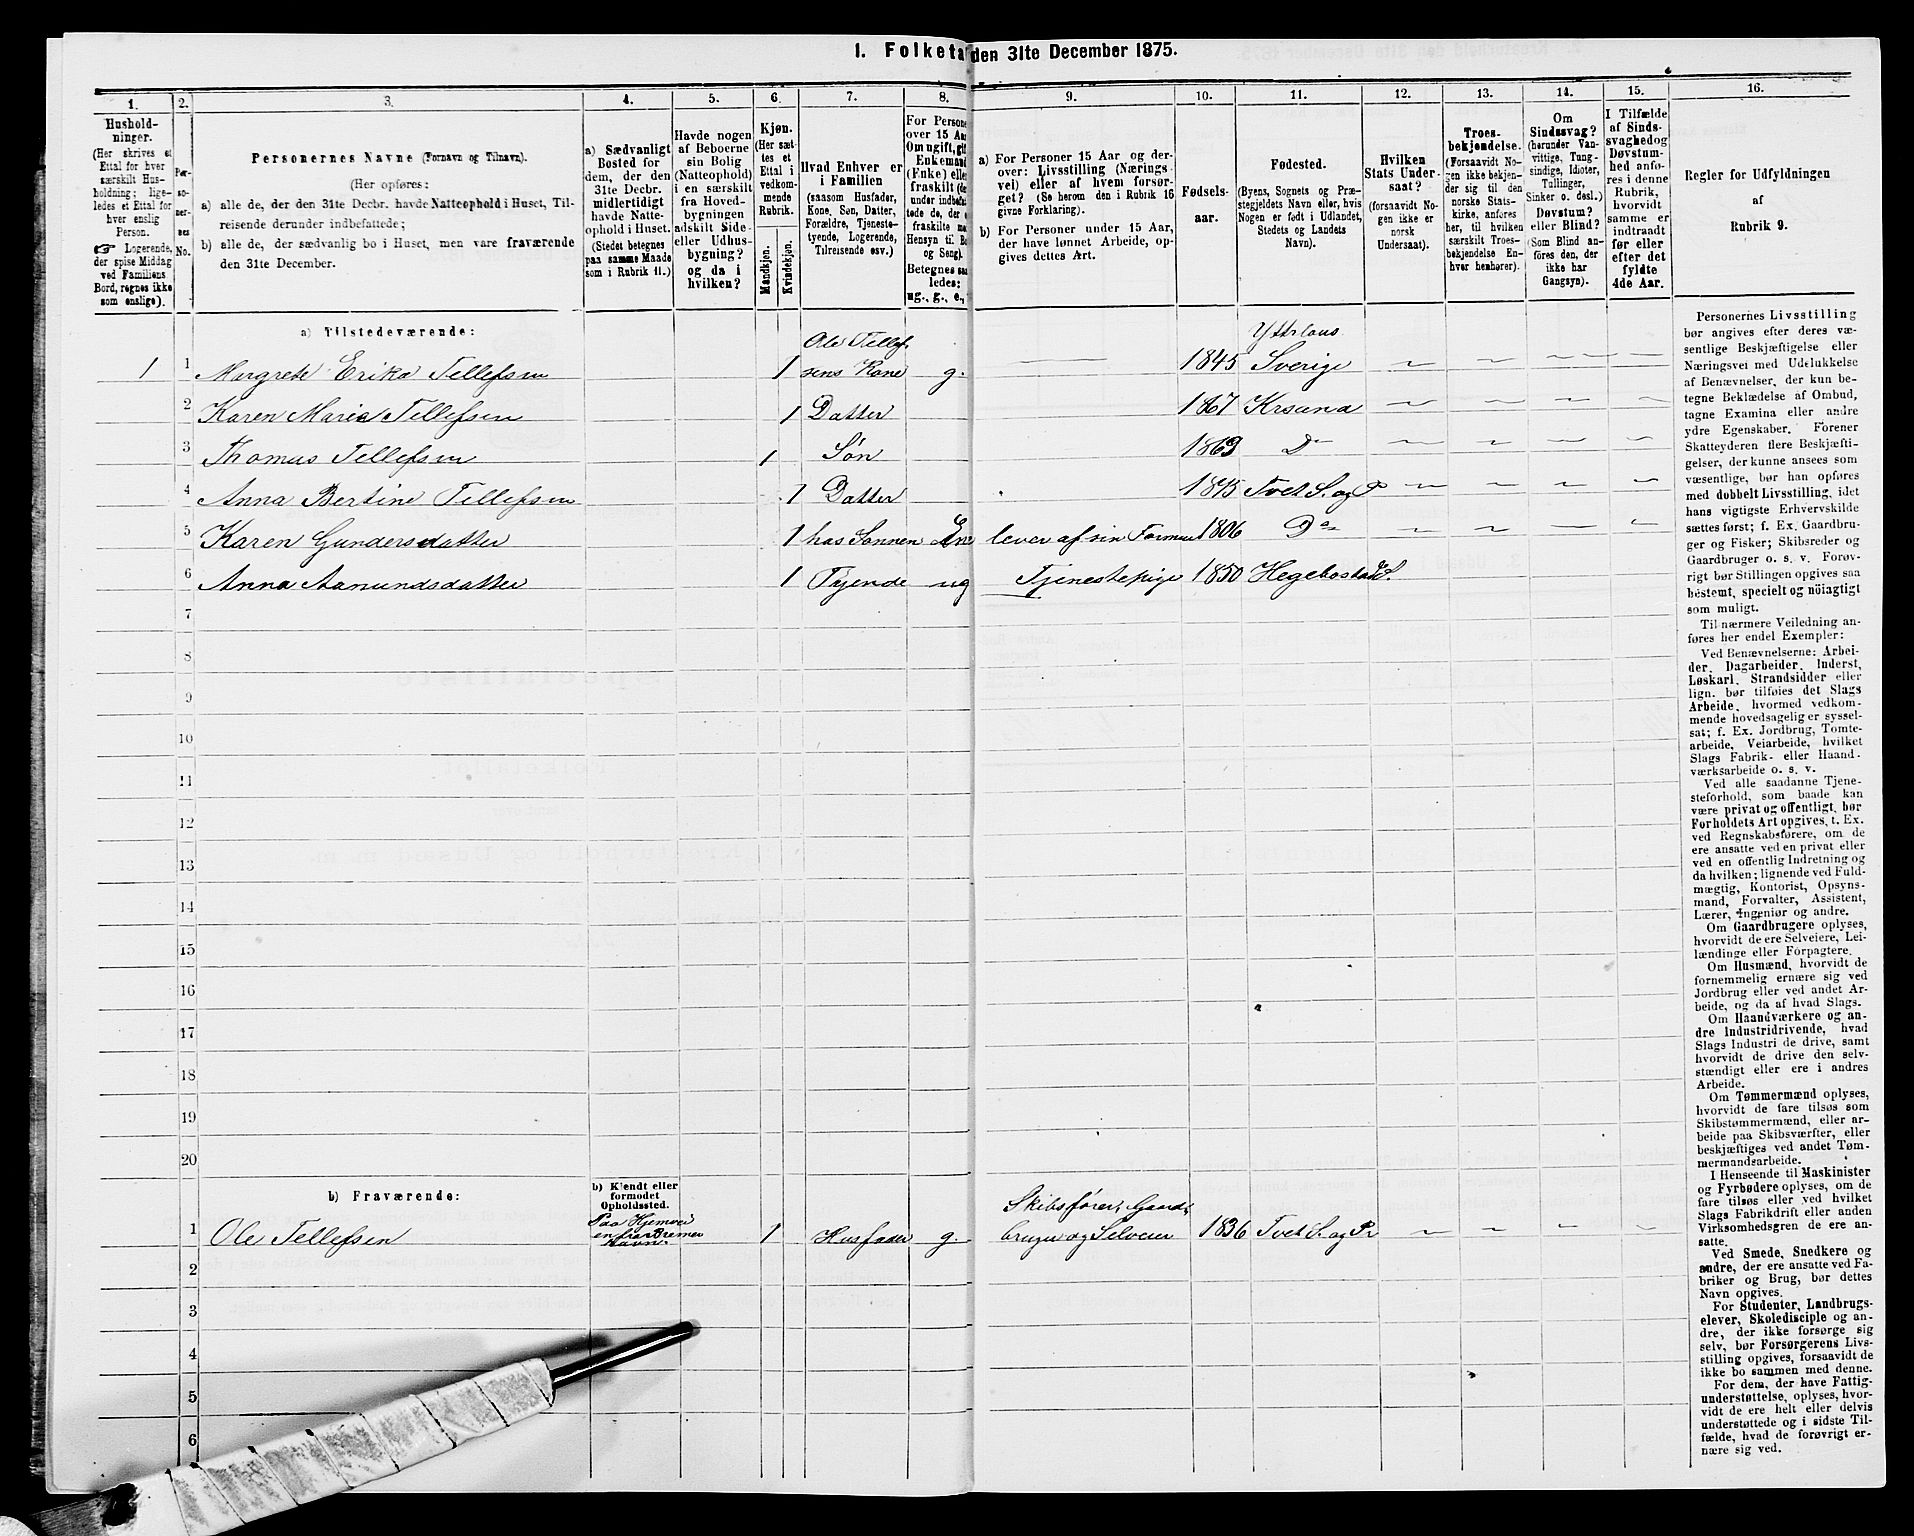 1. Folketa den 31te December 1875.
1. 2. 3. 4. 5. 6. 7. 8. 9. 10. 11. 12. 13. 14. 15. 16.
Hushold-
ninger.
(Her skrives et
Ettal for hver
særskilt Hus-
holdning; lige-
ledes et Ettal for
hver enslig
Person.
☞ Logerende,
der spise Middag
ved Familiens
Bord, regnes ikke
som enslige).
Per-
so-
ner-
nes
No.
Personernes Navne (Fornavn og Tilnavn).
(Her opføres:
a) alle de, der den 31te Decbr. havde Natteophold i Huset, Til-
reisende derunder indbefattede;
b) alle de, der sædvanlig bo i Huset, men vare fraværende
den 31te December.
a) Sædvanligt
Bosted for
dem, der den
31te Decbr.
midlertidigt
havde Natte-
ophold i Huset.
(Stedet betegnes
paa samme Maade
som i Rubrik 11.)
Havde nogen
af Beboerne
sin Bolig
(Natteophold)
i en særskilt
fra Hoved-
bygningen
adskilt Side-
eller Udhus-
bygning?
og da i
hvilken?
Kjøn.
(Her sæt-
tes et
Ettal i
vedkom-
mende
Rubrik.
Mandkjøn.
Kvindekjøn.
Hvad Enhver er
i Familien
(saasom Husfader,
Kone, Søn, Datter,
Forældre, Tjeneste-
tyende, Logerende,
Tilreisende osv.)
For Persone
over 15 Aa
Om ugift, gif
Enkemand
(Enke) elle
fraskilt (de
under indbefa
tede de, der e
fraskilte m
Hensyn til Bo
og Seng).
Betegnes saa
ledes:
ug., g., e.,
a) For Personer 15 Aar og der-
over: Livsstilling (Nærings-
vei) eller af hvem forsør-
get? (Se herom den i Rubrik 16
givne Forklaring).
b) For Personer under 15 Aar,
der have lønnet Arbeide, op-
gives dettes Art.
Fødsels-
aar.
Fødested.
(Byens, Sognets og Præ-
stegjeldets Navn eller, hvis
Nogen er født i Udlandet,
Stedets og Landets
Navn).
Hvilken
Stats Under-
saat?
(forsaavidt No-
gen ikke er
norsk
Undersaat).
Troes-
bekjendelse.
(Forsaavidt No-
gen ikke bekjen-
der sig til den
norske Stats-
kirke, anføres
her, til hvilken
særskilt Troes-
bekjendelse En-
hver henhører).
Om
Sindssvag?
(herunder Van-
vittige, Tung-
sindige, Idioter,
Tullinger,
Sinker o. desl.)
Døvstum?
eller Blind?
(Som Blind an-
føres den, der
ikke har
Gangsyn).
I Tilfælde
af Sinds-
svaghed og
Døvstum-
hed anfø-
res i denne
Rubrik,
hvorvidt
samme er
indtraadt
før eller
efter det
fyldte
4de Aar.
Regler for Udfyldningen
af
Rubrik 9.
a) Tilstedeværende:
1 1 Margrete Erika Tellefsen 1 Ole Tellef-
sens Kone g. — 1845 Sverige
2 Karen Maria Tellefsen 1 Datter 1867 Krsund
3 Thomas Tellefsen 1 Søn 1869 Do
4 Anna Bertine Tellefsen 1 Datter 1875 Tvet S. og P
5 Karen Gundersdatter 1 hos Sønnen lever af sin Formue 1806 Do
6 Anna Aanundsdatter 1 Tyende ug Tjenestepige 1850 Hegebostad S.
7
8
9
10
11
12
13
14
15
16
17
18
19
20
b) Fraværende:
b) Kjendt eller
formodet
Opholdssted.
1 Ole Tellefsen Paa Hjemvei
en fra Bremer
Havn. 1 Husfader g. Skibsfører, Gaard-
bruger og Selveier 1836 Tvet S. og Pr
2
3
4
5
6
Personernes Livsstilling
bør angives efter deres væ-
sentlige Beskjæftigelse eller
Næringsvei med Udelukkelse
af Benævnelser, der kun be-
tegne Beklædelse af Ombud,
tagne Examina eller andre
ydre Egenskaber. Forener
Skatteyderen flere Beskjæfti-
gelser, der kunne ansees som
væsentlige, bør han opføres
med dobbelt Livsstilling, idet
hans vigtigste Erhvervskilde
sættes først; f. Ex. Gaardbru-
ger og Fisker; Skibsreder og
Gaardbruger o. s. v. Forøv-
rigt bør Stillingen opgives saa
bestemt, specielt og nöiagtigt
som muligt.
Til nærmere Veiledning an-
føres her endel Exempler:
Ved Benævnelserne: Arbei-
der, Dagarbeider, Inderst,
Løskarl, Strandsidder eller
lign. bør tilføies det Slags
Arbeide, hvormed vedkom-
mende hovedsagelig er syssel-
sat; f. Ex. Jordbrug, Tomte-
arbeide, Veiarbeide, hvilket
Slags Fabrik- eller Haand-
værksarbeide o. s. v.
Ved alle saadanne Tjene-
steforhold, som baade kan
være privat og offentligt, bør
Forholdets Art opgives, t. Ex.
ved Regnskabsførere, om de
ere ansatte ved en privat eller
ved en offentlig Indretning og
da hvilken; lignende ved Fuld-
mægtig, Kontorist, Opsyns-
mand, Forvalter, Assistent,
Lærer, Ingeniør og andre.
Om Gaardbrugere oplyses,
hvorvidt de ere Selveiere, Lei-
lændinge eller Forpagtere.
Om Husmænd, hvorvidt de
fornemmelig ernære sig ved
Jordbrug eller ved andet Ar-
beide, og da af hvad Slags.
Om Haandværkere og an-
dre Industridrivende, hvad
Slags Industri de drive, samt
hvorvidt de drive den selv-
stændigt eller ere i andres
Arbeide.
Om Tømmermænd oplyses,
hvorvidt de fare tilsøs som
Skibstømmermænd, eller ar-
beide paa Skibsværfter, eller
beskjæftiges ved andet Tøm-
mermandsarbeide.
I Henseende til Maskinister
og Fyrbødere oplyses, om de
fare tilsøs eller ved hvilket
Slags Fabrikdrift eller anden
Virksomhedsgren de ere an-
satte.
Ved Smede, Snedkere og
andre, der ere ansatte ved Fa-
briker og Brug, bør dettes
Navn opgives.
For Studenter, Landbrugs-
elever, Skoledisciple og an-
dre, der ikke forsørge sig
selv, bør Forsørgerens Livs-
stilling opgives, forsaavidt de
ikke bo sammen med denne.
For dem, der have Fattig-
understøttelse, oplyses, hvor-
vidt de ere helt eller delvis
understøttede og i sidste Til-
fælde, hvad de forøvrigt er-
nære sig ved.